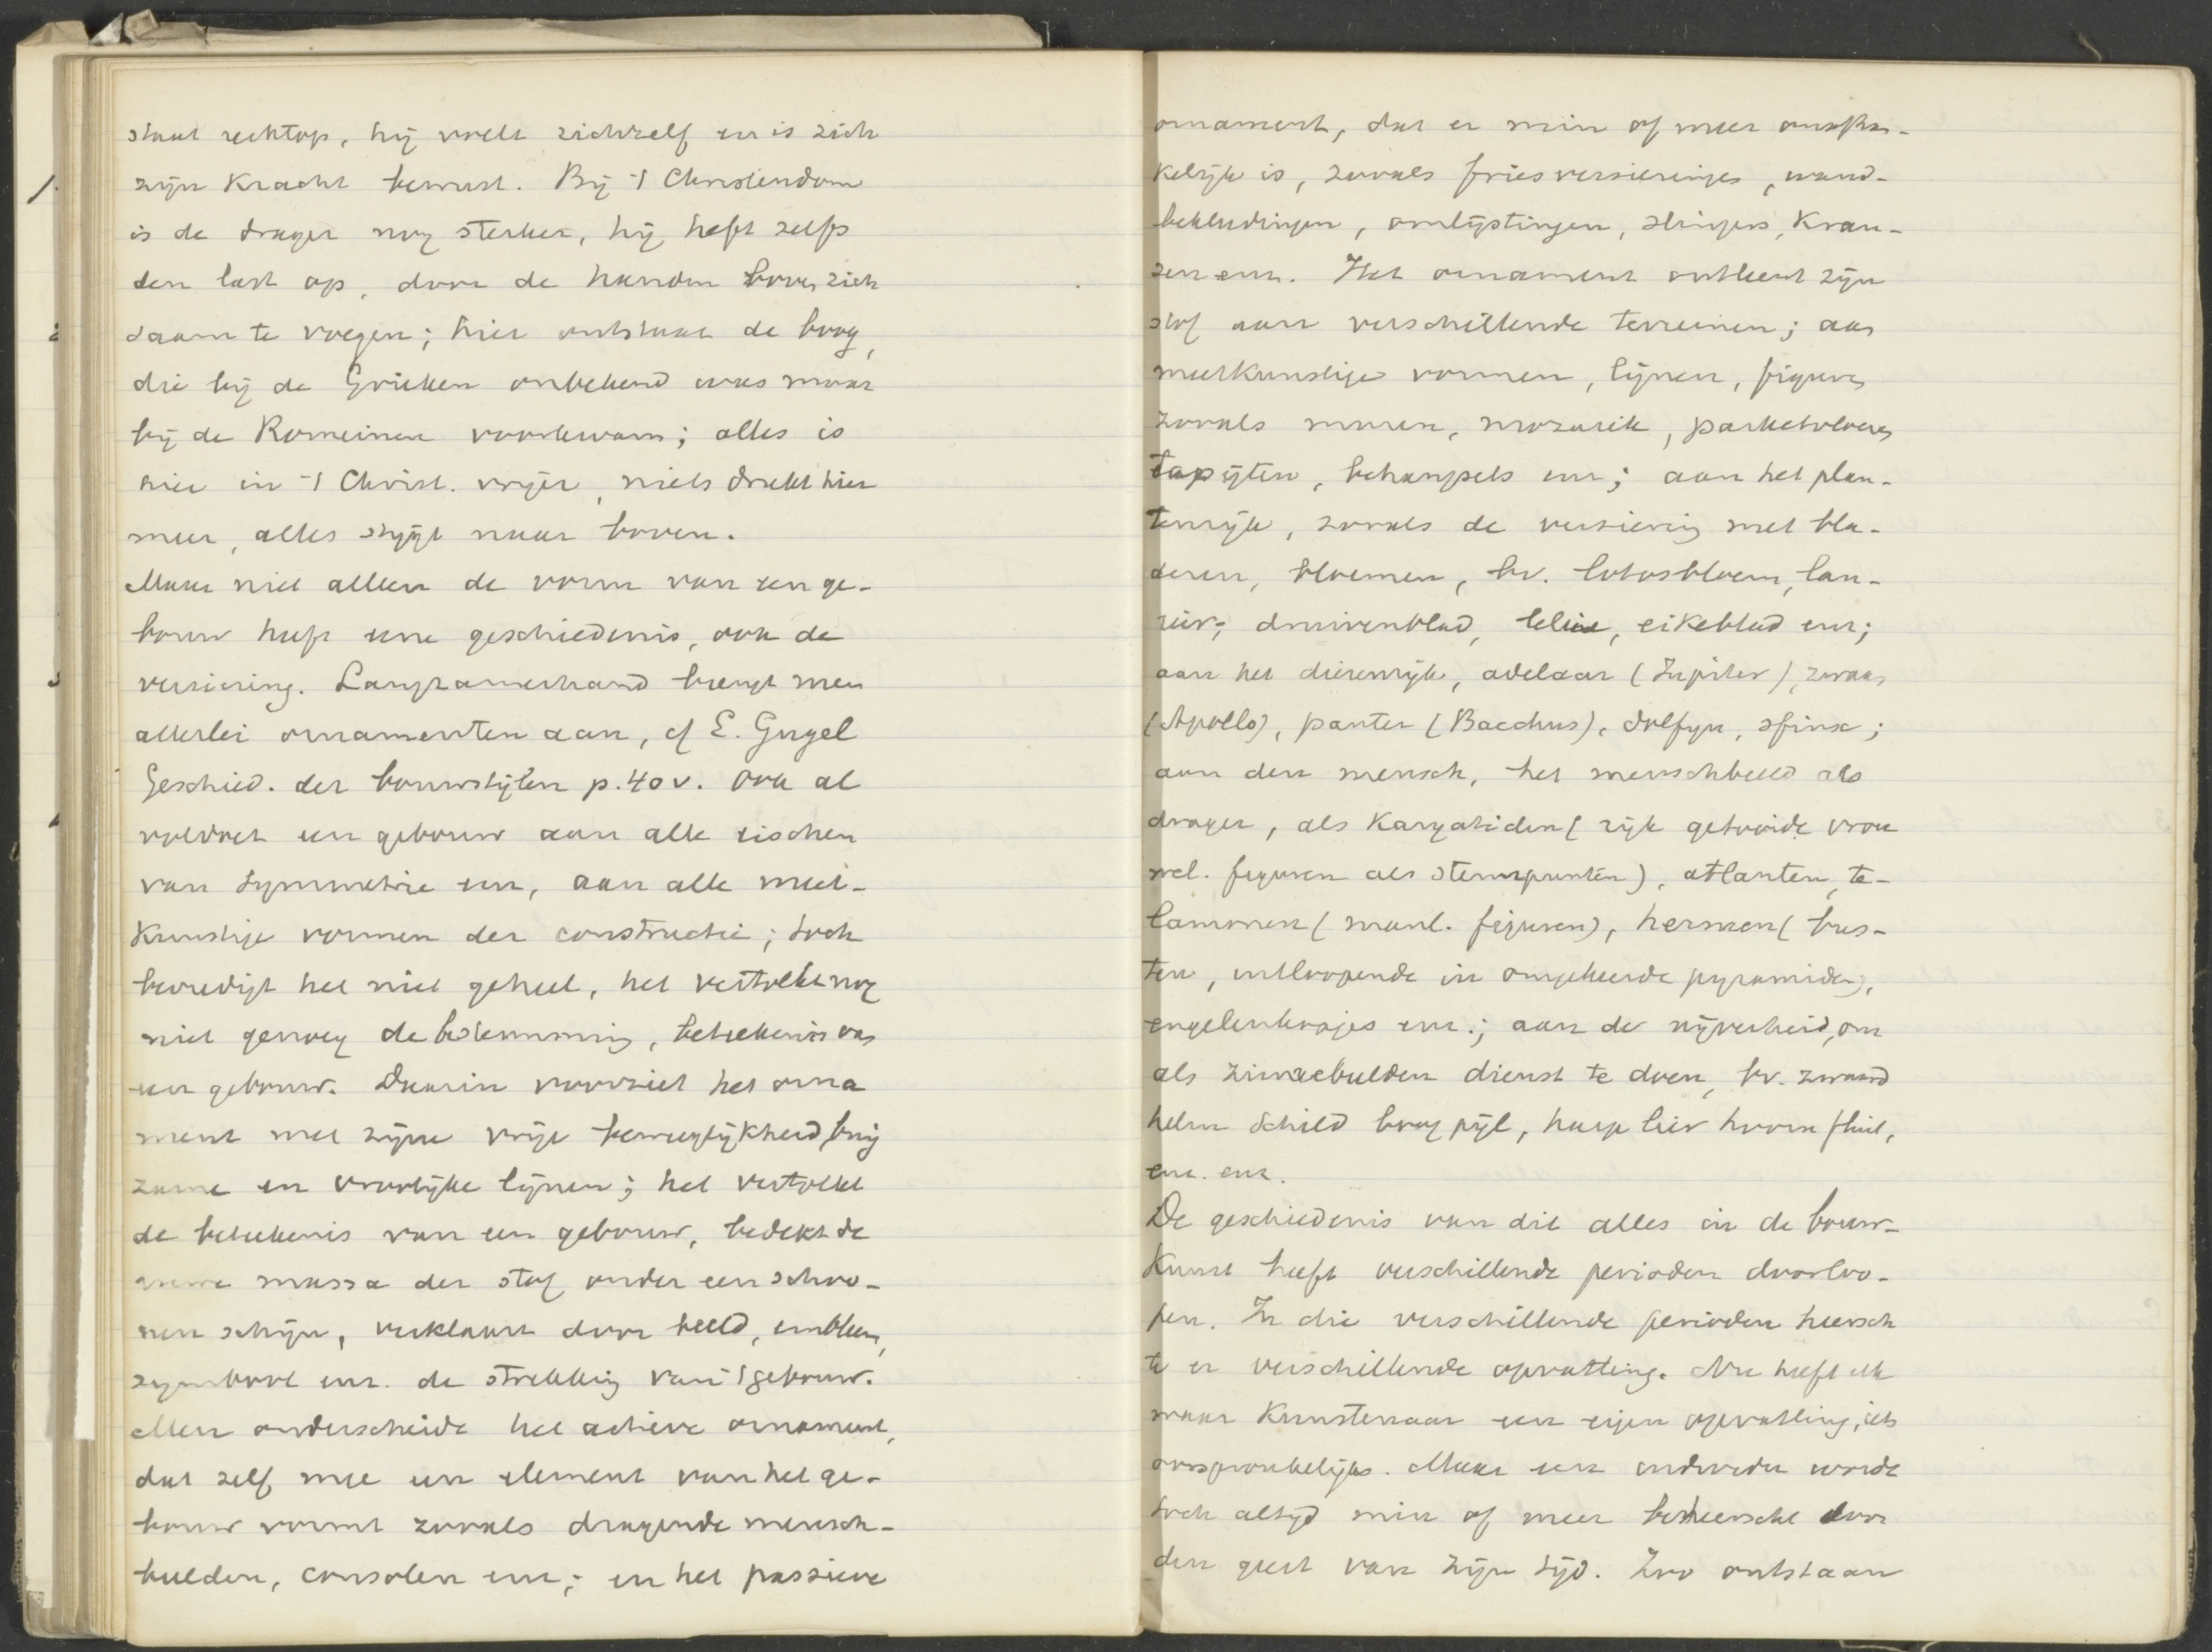 staat rechtop, hij voelt zichzelf en is zich
zijn kracht bewust. Bij 't Christendom
is de drager nog sterker, hij heft zelfs
den last op, door de handen boven zich
saam te voegen; hier ontstaat de boog,
die bij de Grieken onbekend was maar
bij de Romeinen voorkwam; alles is
hier in 't Christ. vrijer, niets drukt hier
meer, alles stijgt naar boven.
Maar niet alleen de vorm van een ge-
bouw heeft eene geschiedenis, ook de
versiering. Langzamerhand brengt men
allerlei ornamenten aan, cf E. Gugel
Geschied. der bouwstijlen p. 40 v. Ook al
voldoet een gebouw aan alle eischen
van symmetrie enz, aan alle meet-
kunstige vormen der constructie; toch
bevredigt het niet geheel, het vertolkt nog
niet genoeg de bestemming, beteekenis van
een gebouw. Daarin voorziet het orna
ment met zijne vrije bewegelijkheid, buig
zame en vroolijke lijnen; het vertolkt
de beteekenis van een gebouw, bedekt de
massa der stof onder een schoo-
nen schijn, verklaart door beeld, embleem,
symbool enz. de strekking van 't gebouw.
Men onderscheide het actieve ornament,
dat zelf mee een element van het ge-
bouw vormt zooals dragende mensch-
beelden, consolen enz; en het passieve
ornament, dat er min of meer onafhan-
kelijk is, zooals friesversieringen, wand-
bekleedingen, omlijstingen, slingers, kran-
zen enz. Het ornament ontleent zijn
stof aan verschillende terreinen; aan
meetkunstige vormen, lijnen, figuren
zooals muren, mozaiek, parketvloeren
tapijten, behangsels enz; aan het plan-
tenrijk, zooals de versiering met bla-
deren, bloemen, bv. lotosbloem, lau-
rier, druivenblad, lelie, eikeblad enz;
aan het dierenrijk, adelaar (Jupiter), zwaan
(Apollo), panter (Bacchus), dolfijn, sfinx;
aan den mensch, het menschbeeld als
drager, als Karyatiden (rijk getooide vrou
wel. figuren als steunpunten), atlanten, te-
lammen (manl. figuren), hermen (bus-
ten, uitloopende in omgekeerde pyramiden),
engelenkopjes enz.; aan de nijverheid, om
als zinnebeelden dienst te doen, bv. zwaard
helm schild boog pijl, harp lier hoorn fluit,
enz. enz.
De geschiedenis van dit alles in de bouw-
kunst heeft verschillende perioden doorloo-
pen. In die verschillende perioden heersch
te er verschillende opvatting. Nu heeft elk
waar kunstenaar een eigen opvatting, iets
oorspronkelijks. Maar een individu wordt
toch altijd min of meer beheerscht door
den geest van zijn tijd. Zoo ontstaan